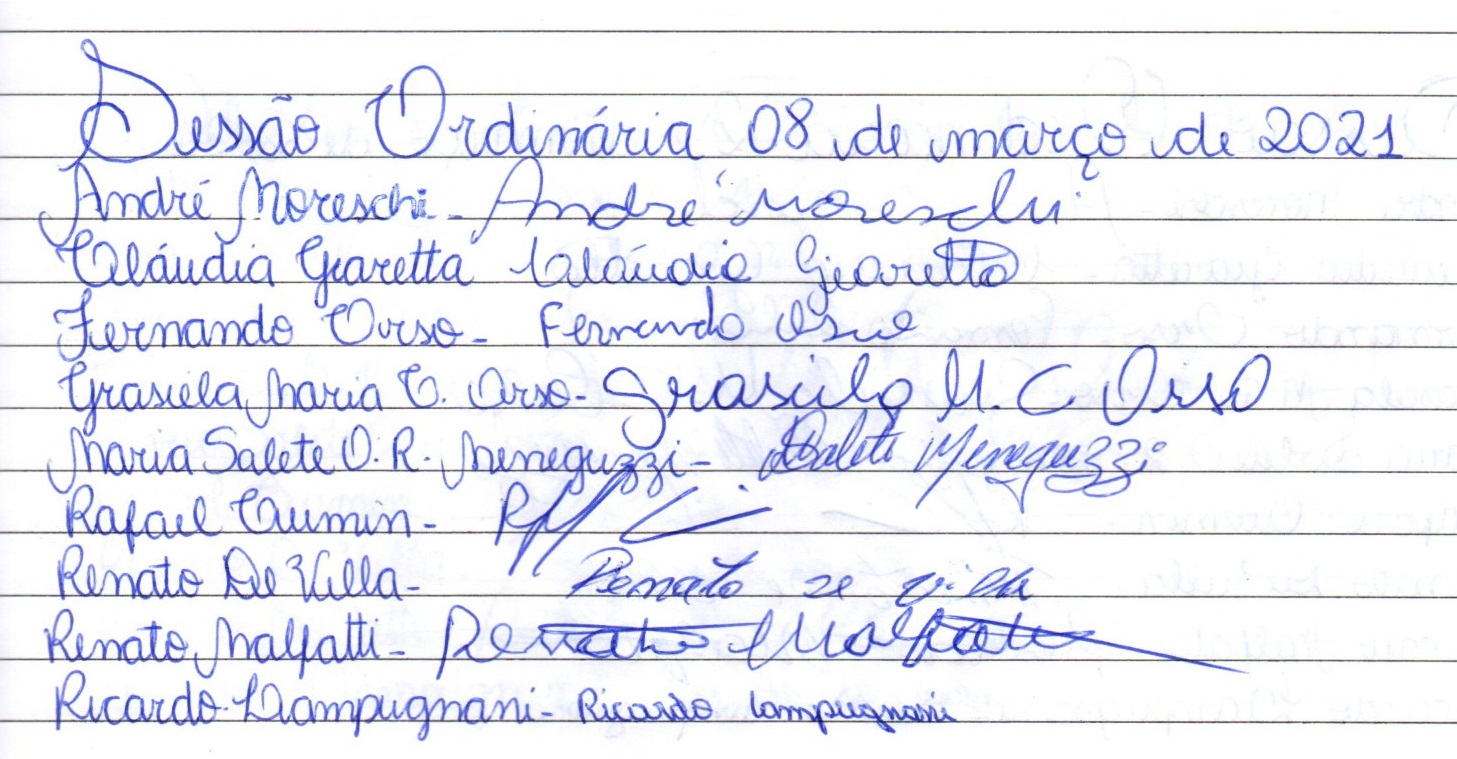 Sessão Ordinária 08 de março de 2021
André Moreschi - André Moreschi
Cláudia Giaretta Cláudia Giaretta
Fernando Orso - Fernando Orso
Grasiela Maria C. Orso - Grasiela M. C. Orso
Maria Salete O. R. Meneguzzi - Salete Meneguzzi
Rafael Cumin -
Renato De Villa - Renato de villa
Renato Malfatti - Renato Malfatti
Ricardo Lampugnani - Ricardo Lampugnani